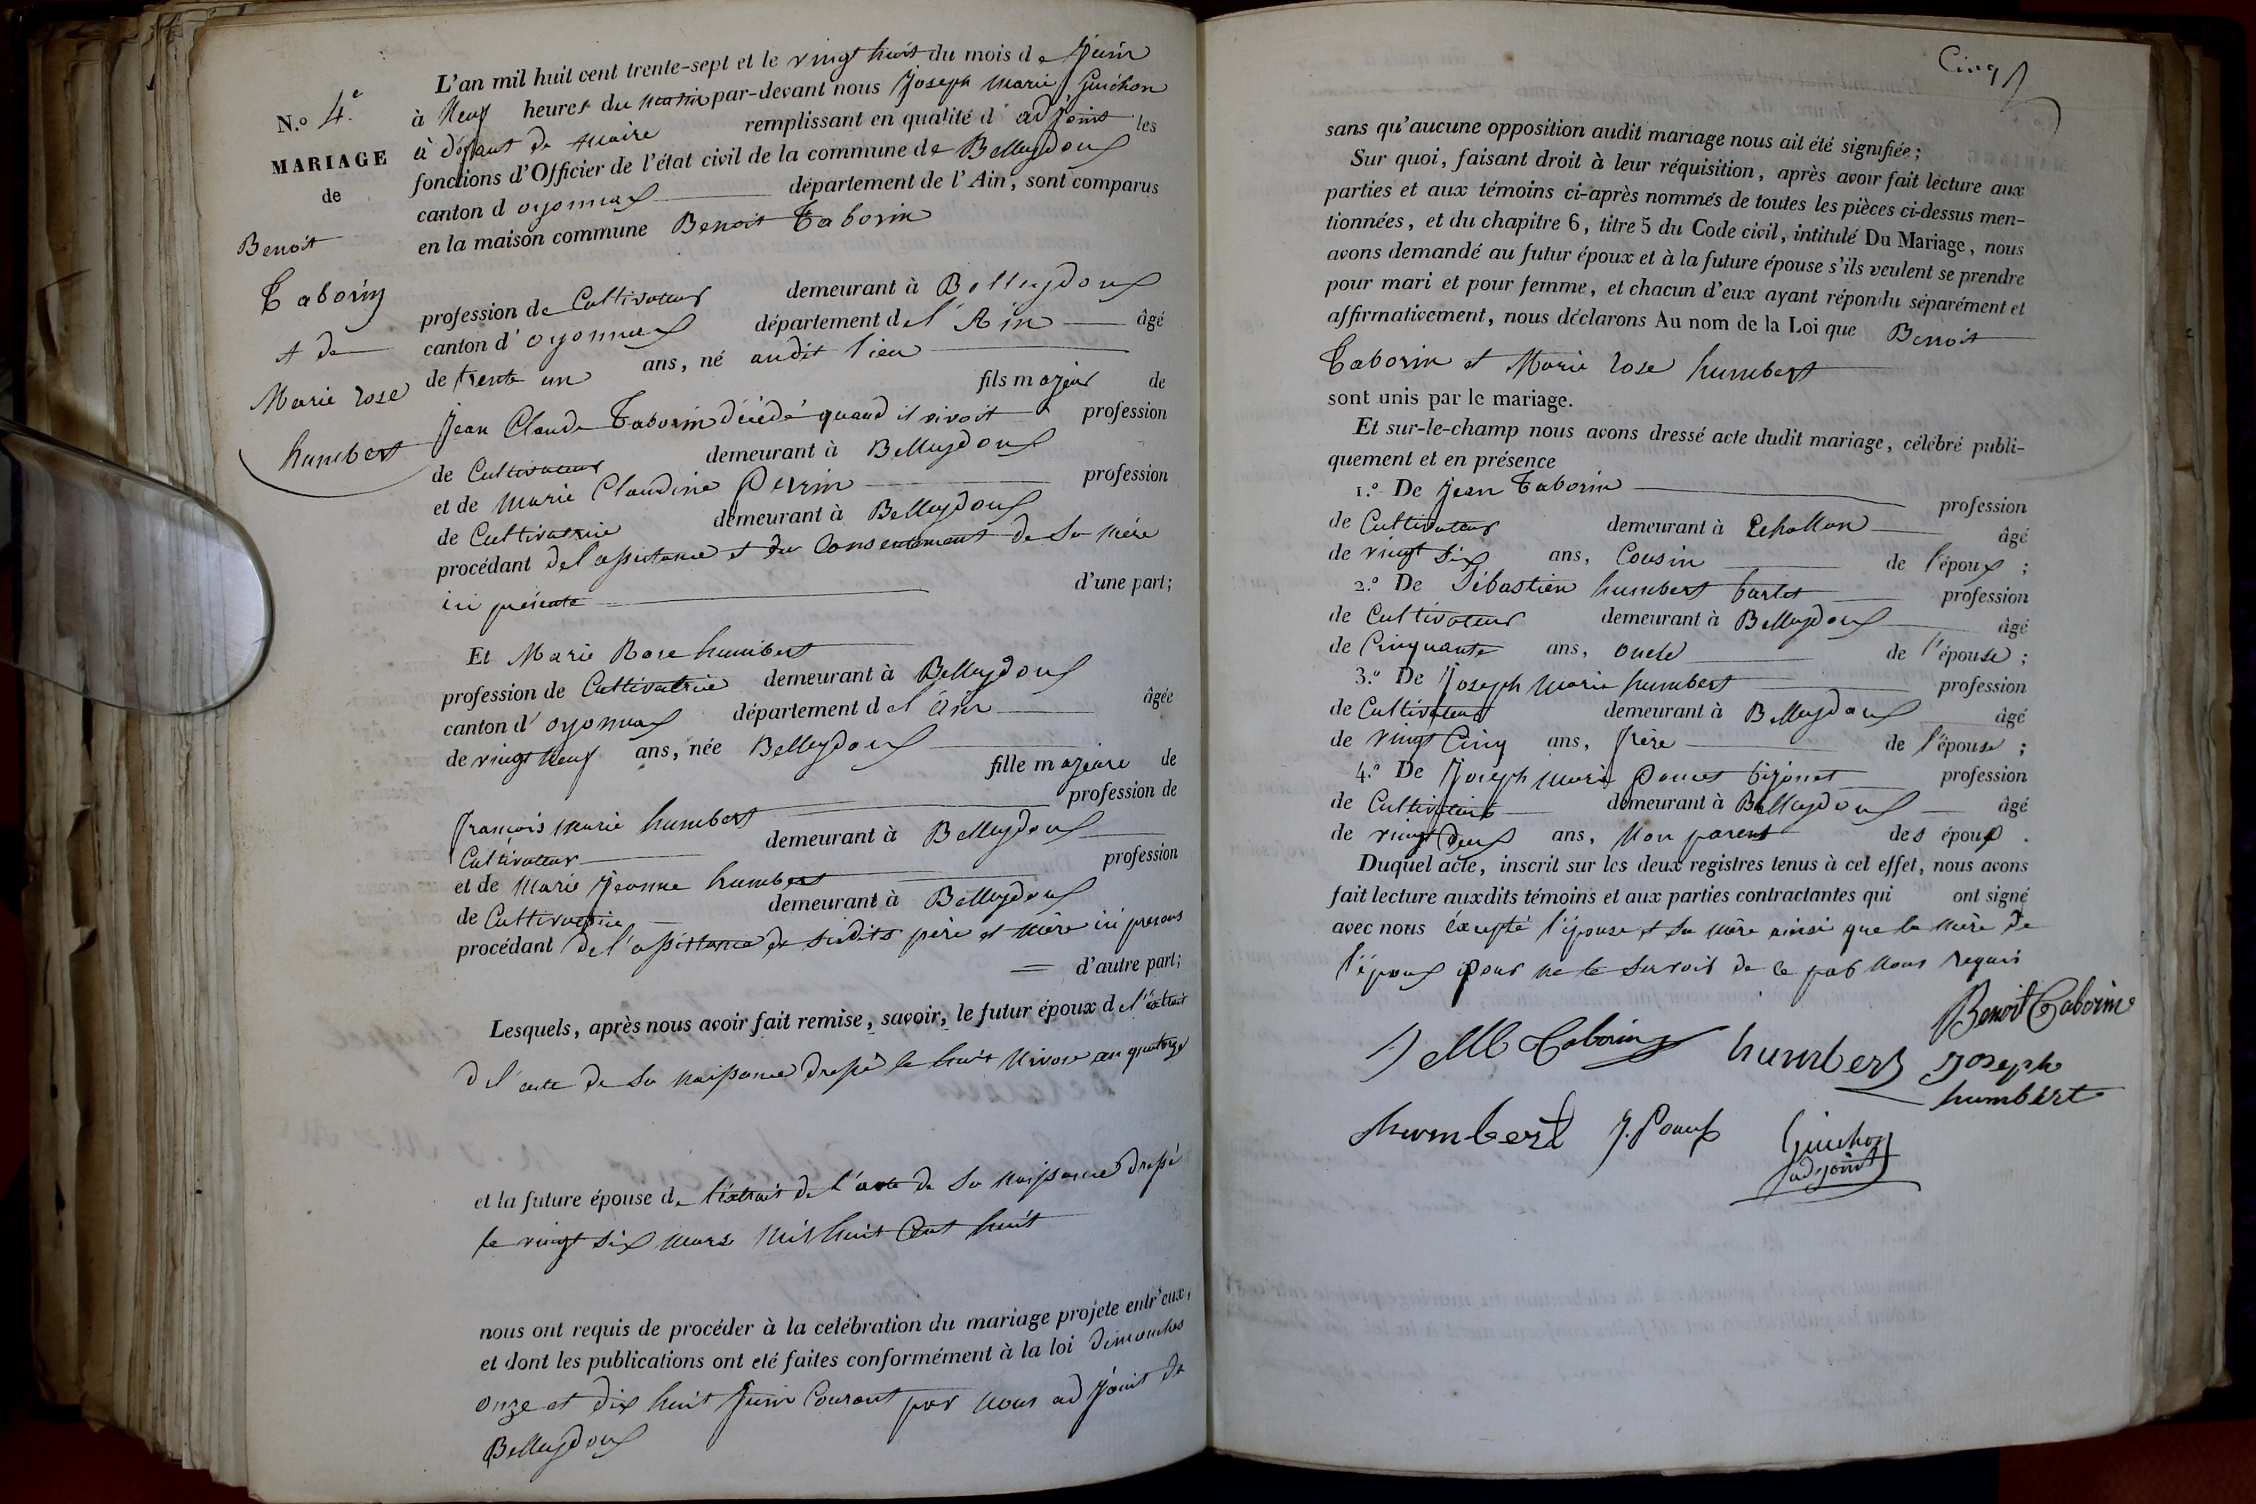 N.o 4.e
MARIAGE
de
Benoit
Taborin
et de
Marie rose
humbert
L'an mil huit cent trente-sept et le vingt huit du mois de Juin
à Neuf heures du matin par-devant nous Joseph Marie Guichon
à défaut de Maire remplissant en qualité d'adjoint les
fonctions d'Officier de l'état civil de la commune de Belleydoux
canton d oyonnax département de l'Ain, sont comparus
en la maison commune Benoit Taborin
profession de Cultivateur demeurant à Belleydoux
canton d'oyonnax département de l'Ain âgé
de trente un ans, né audit lieu
fils majeur de
Jean Claude Taborin décédé quand il vivoit profession
de Cultivateur demeurant à Belleydoux
et de Marie Claudine Perrin profession
de Cultivatrice demeurant à Belleydoux
procédant de l'assistance et du Consentement de Sa Mère
ici présente d'une part;
Et Marie Rose humbert
profession de Cultivatrice demeurant à Belleydoux
canton d'oyonnax département de l'Ain âgée
de vingt neuf ans, née Belleydoux
fille majeure de
françois Marie humbert profession de
Cultivateur demeurant à Belleydoux
et de Marie Jeanne humbert profession
de Cultivatrice demeurant à Belleydoux
procédant de l'assistance de Sesdits père et Mère ici presens
d'autre part;
Lesquels, après nous avoir fait remise, savoir, le futur époux de l'extrait
de l'acte de Sa Naissance dressé le huit Nivose an quatorze
et la future épouse de l'extrait de l'acte de Sa Naissance dressé
le vingt six Mars Mil huit Cent huit
nous ont requis de procéder à la celébration du mariage projete entr'eux,
et dont les publications ont eté faites conformément à la loi dimanches
onze et dix huit Juin Courant par Nous adjoint de
Belleydoux
Cinq
sans qu'aucune opposition audit mariage nous ait été signifiée;
Sur quoi, faisant droit à leur réquisition, après avoir fait lecture aux
parties et aux témoins ci-après nommés de toutes les pièces ci-dessus men-
tionnées, et du chapitre 6, titre 5 du Code civil, intitulé Du Mariage, nous
avons demandé au futur époux et à la future épouse s'ils veulent se prendre
pour mari et pour femme, et chacun d'eux ayant répondu séparément et
affirmativement, nous déclarons Au nom de la Loi que Benoit
Taborin et Marie rose humbert
sont unis par le mariage.
Et sur-le-champ nous avons dressé acte dudit mariage, célébré publi-
quement et en présence
1.o De Jean Taborin profession
de Cultivateur demeurant à Echallon âgé
de vingt Six ans, Cousin de l'époux ;
2.o De Sébastien humbert profession
de Cultivateur demeurant à Belleydoux âgé
de Cinquante ans, oncle de l'épouse ;
3.o De Joseph Marie humbert profession
de Cultivateur demeurant à Belleydoux âgé
de vingt Cinq ans, frère de l'épouse ;
4.o De Joseph Marie Poncet profession
de Cultivateur demeurant à Belleydoux âgé
de vingt deux ans, Non parent des époux .
Duquel acte, inscrit sur les deux registres tenus à cet effet, nous avons
fait lecture auxdits témoins et aux parties contractantes qui ont signé
avec nous éxcepté l'épouse et Sa Mère ainsi que la Mère de
l'époux pour ne le Savoir de ce par Nous requis
Benoit Taborin
Taborin humbert Joseph
humbert
humbert J. Poncet Guichon
adjoint